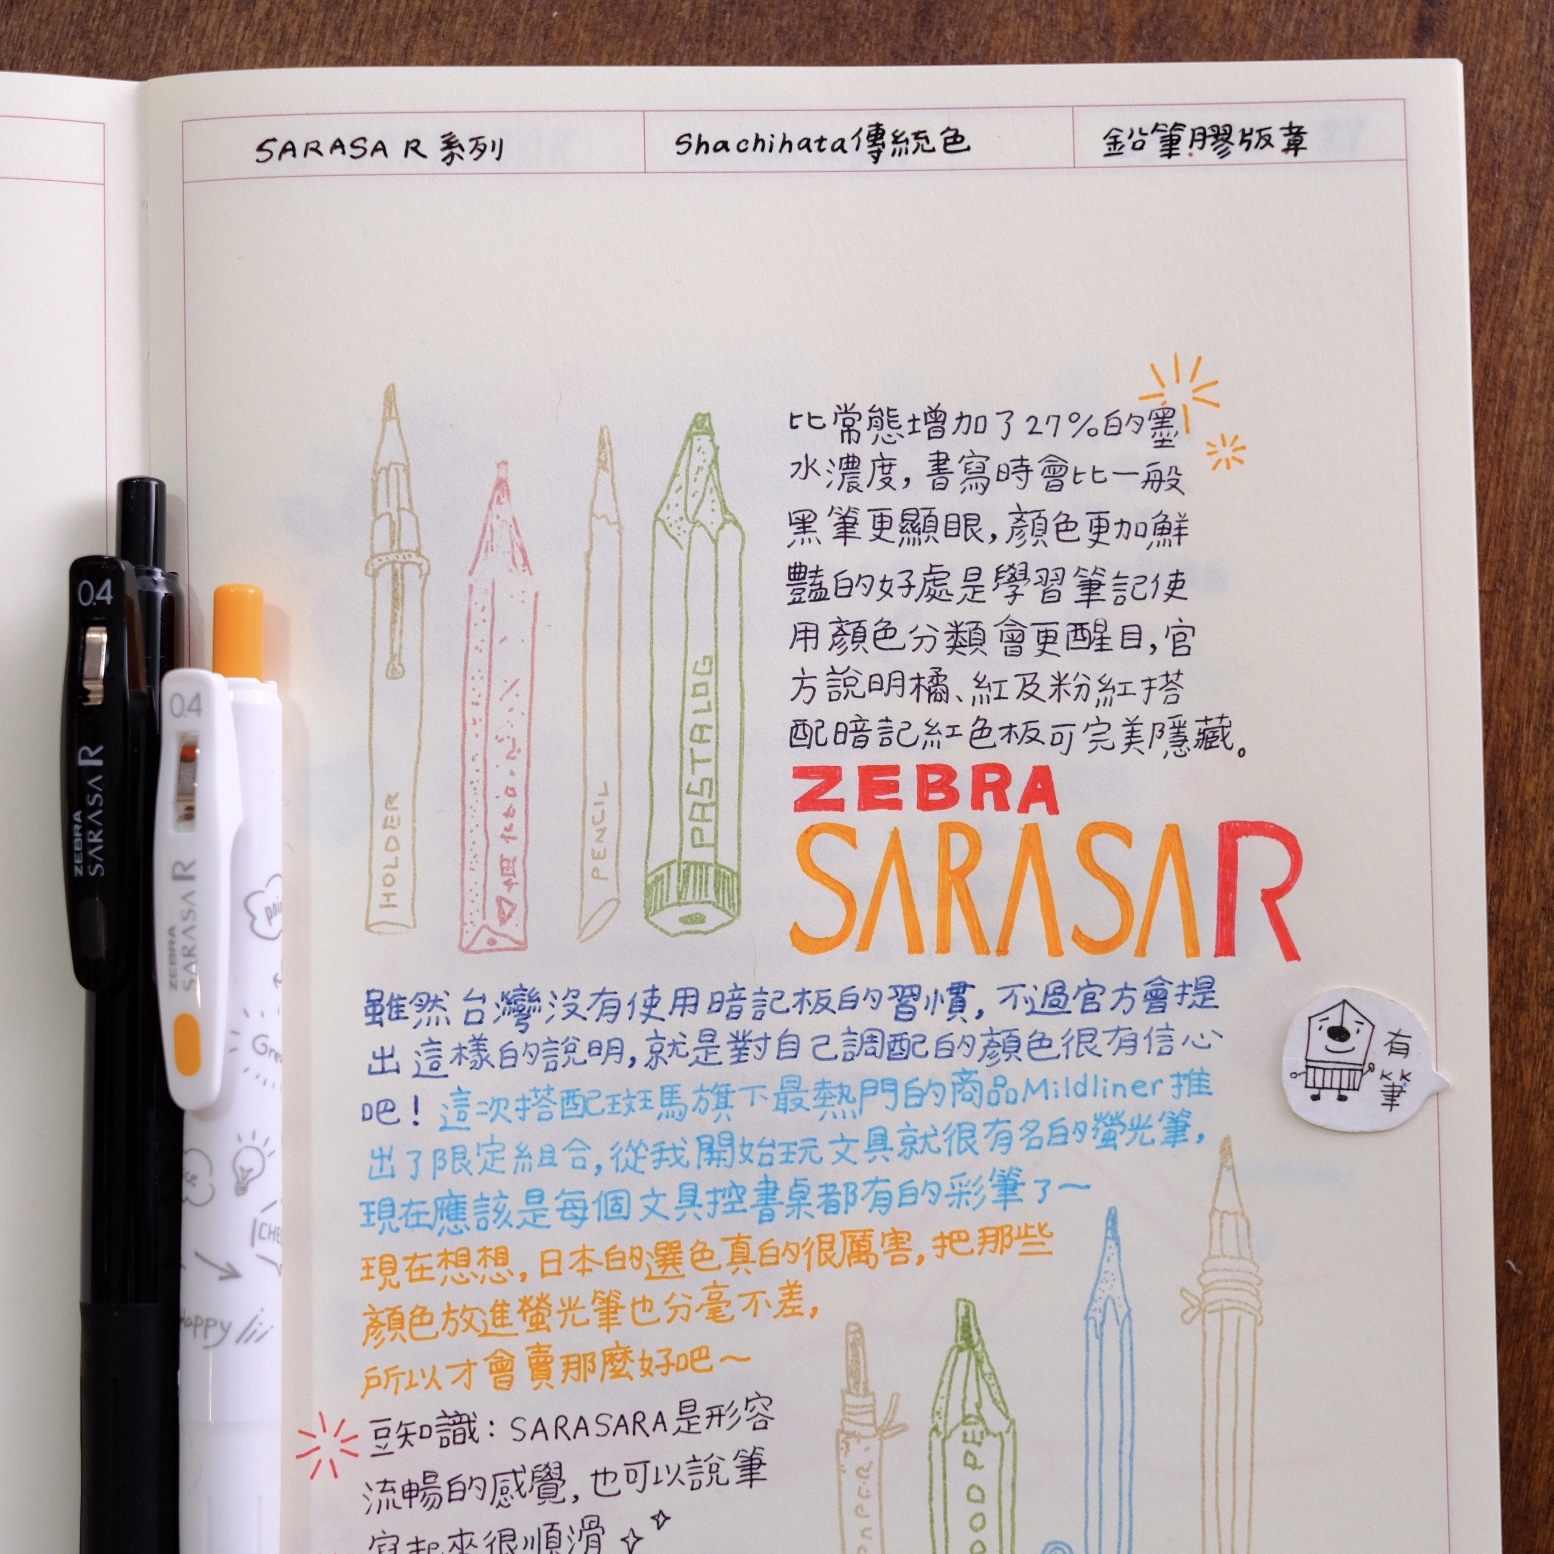 SARASA R 系列
Shachihata傳統色
鉛筆膠版章
比常態增加了27%的墨
水濃度,書寫時會比一般
黑筆更顯眼,顏色更加鮮
豔的好處是學習筆記使
用顏色分類會更醒目,官
方說明橘、紅及粉紅搭
配暗記紅色板可完美隱藏。
ZEBRA
SARASAR
HOLDER
PENCIL
PASTALOG
0.4
ZEBRA
SARASA R
0.4
ZEBRA
SARASA R
Happy
雖然台灣沒有使用暗記板的習慣,不過官方會提
出這樣的說明,就是對自己調配的顏色很有信心
吧!這次搭配斑馬旗下最熱門的商品Mildliner推
出了限定組合,從我開始玩文具就很有名的螢光筆,
現在應該是每個文具控書桌都有的彩筆了~
現在想想,日本的選色真的很厲害,把那些
顏色放進螢光筆也分毫不差,
所以才會賣那麼好吧~
豆知識:SARASARA是形容
流暢的感覺,也可以說筆
寫起來很順滑
有
KK
筆